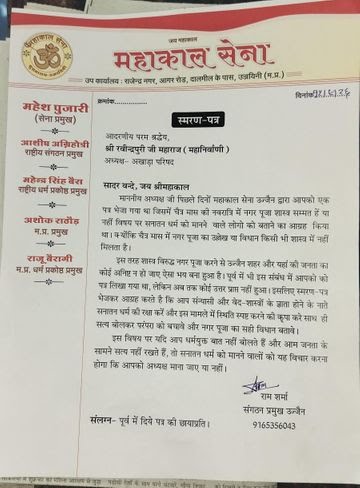 जय महाकाल
महाकाल सेना
उप कार्यालय : राजेन्द्र नगर, आगर रोड़, दालमील के पास, उज्जयिनी (म.प्र.)
क्रमांक
दिनांक
स्मरण-पत्र
महेश पुजारी
(सेना प्रमुख)
आशीष अग्निहोत्री
राष्ट्रीय संगठन प्रमुख
महेन्द्र सिंह बैस
राष्ट्रीय धर्म प्रकोष्ठ प्रमुख
अशोक राठौड़
म.प्र. प्रमुख
राजू बैरागी
म.प्र. धर्म प्रकोष्ठ प्रमुख
आदरणीय परम श्रद्धेय,
श्री रविन्द्रपुरी जी महाराज (महानिर्वाणी)
अध्यक्ष- अखाड़ा परिषद
सादर वन्दे, जय श्रीमहाकाल
माननीय अध्यक्ष जी पिछले दिनों महाकाल सेना उज्जैन द्वारा आपको एक
पत्र भेजा गया था जिसमें चैत्र मास की नवरात्रि में नगर पूजा शास्त्र सम्मत है या
नहीं विषय पर सनातन धर्म को मानने वाले लोगों को बताने का आग्रह किया
था। क्योंकि चैत्र मास में नगर पूजा का उल्लेख या विधान किसी भी शास्त्र में नहीं
मिलता है।
इस तरह शास्त्र विरुद्ध नगर पूजा करने से उज्जैन शहर और यहां की जनता का
कोई अनिष्ट न हो जाए ऐसा भय बना हुआ है। पूर्व में भी इस संबंध में आपको को
पत्र लिखा गया था, लेकिन अब तक कोई उत्तर प्राप्त नहीं हुआ। इसलिए स्मरण-पत्र
भेजकर आग्रह करते है कि आप संन्यासी और वेद-शास्त्रों के ज्ञाता होने के नाते
सनातन धर्म की रक्षा करें और इस मामले में स्थिति स्पष्ट करने की कृपा करे साथ ही
सत्य बोलकर परंपरा को बचावे और नगर पूजा का सही विधान बतावे।
इस विषय पर यदि आप धर्मयुक्त बात नहीं बोलते हैं और आम जनता के
सामने सत्य नहीं रखते हैं, तो सनातन धर्म को मानने वालों को यह विचार करना
होगा कि आपको अध्यक्ष माना जाए या नहीं।
राम शर्मा
संगठन प्रमुख उज्जैन
9165356043
संलग्न- पूर्व में दिये पत्र की छायाप्रति।